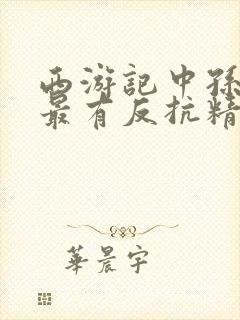 西游記中孫
最有反抗精
華晨宇